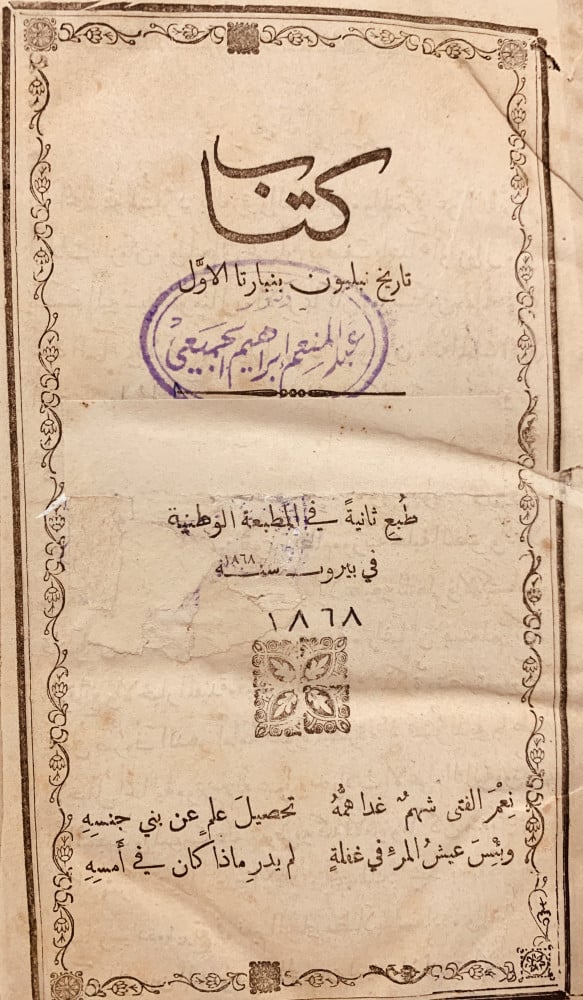 كتاب
تاريخ نبليون بنبارتا الاوَّل
عبد المنعم ابراهيم الجميعي
طُبِع ثانيةً في المطبعة الوطنية
في بيروت سنة ١٨٦٨
١٨٦٨
نِعْمَ الفتى شهمٌ غدا همُّهُ تحصيلَ علمٍ عن بني جنسِهِ
وبِئسَ عيشُ المرءِ في غفلةٍ لم يدرِ ماذا كان في أَمسِهِ